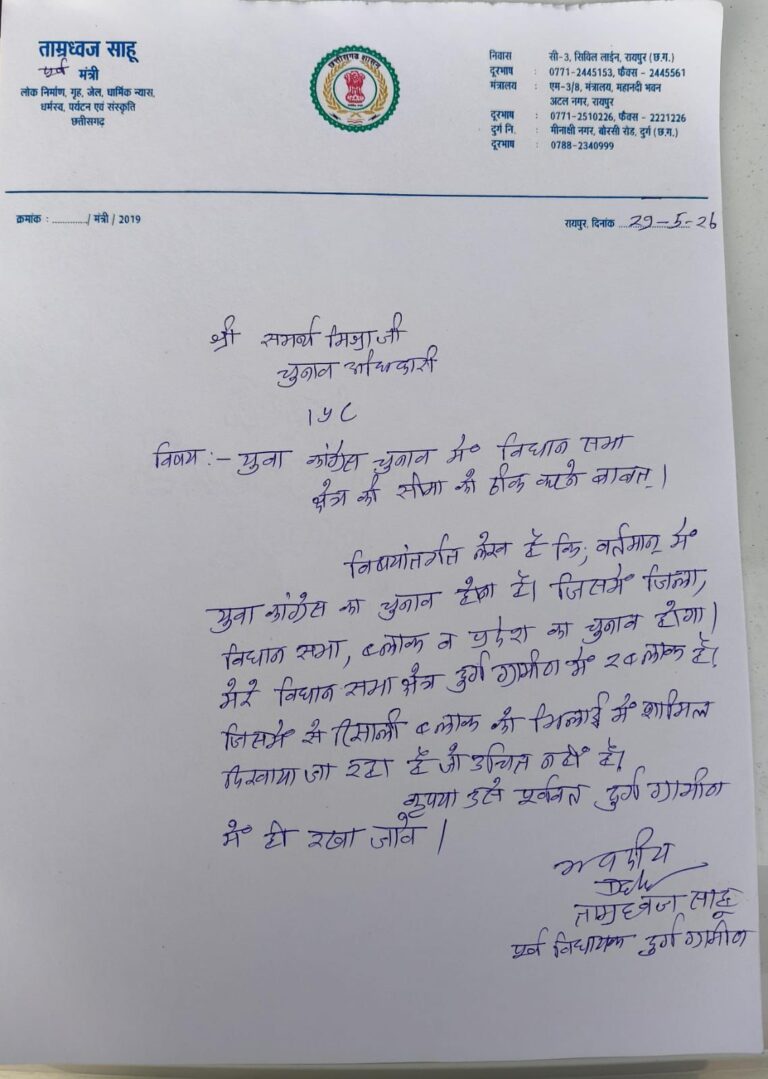 ताम्रध्वज साहू
पूर्व मंत्री
लोक निर्माण, गृह, जेल, धार्मिक न्यास,
धर्मस्व, पर्यटन एवं संस्कृति
छत्तीसगढ़
छत्तीसगढ़ शासन
निवास सी-3, सिविल लाईन, रायपुर (छ.ग.)
दूरभाष : 0771-2445153, फैक्स - 2445561
मंत्रालय : एम-3/8, मंत्रालय, महानदी भवन
अटल नगर, रायपुर
दूरभाष : 0771-2510226, फैक्स - 2221226
दुर्ग नि. : मीनाक्षी नगर, बोरसी रोड, दुर्ग (छ.ग.)
दूरभाष : 0788-2340999
क्रमांक : ............/ मंत्री / 2019
रायपुर, दिनांक 29-5-26
श्री समर्थ मिश्रा जी
चुनाव अधिकारी
विषय :- युवा कांग्रेस चुनाव में विधान सभा
क्षेत्र की सीमा को ठीक करने बाबत्।
विषयांतर्गत लेख है कि, वर्तमान में
युवा कांग्रेस का चुनाव होना है। जिसमें जिला,
विधान सभा, ब्लाक व प्रदेश का चुनाव होगा।
मेरे विधान सभा क्षेत्र दुर्ग ग्रामीण में 2 ब्लाक है।
जिसमें से रिसाली ब्लाक को भिलाई में शामिल
दिखाया जा रहा है जो उचित नहीं है।
कृपया उसे पूर्ववत दुर्ग ग्रामीण
में ही रखा जावे।
भवदीय
ताम्रध्वज साहू
पूर्व विधायक दुर्ग ग्रामीण